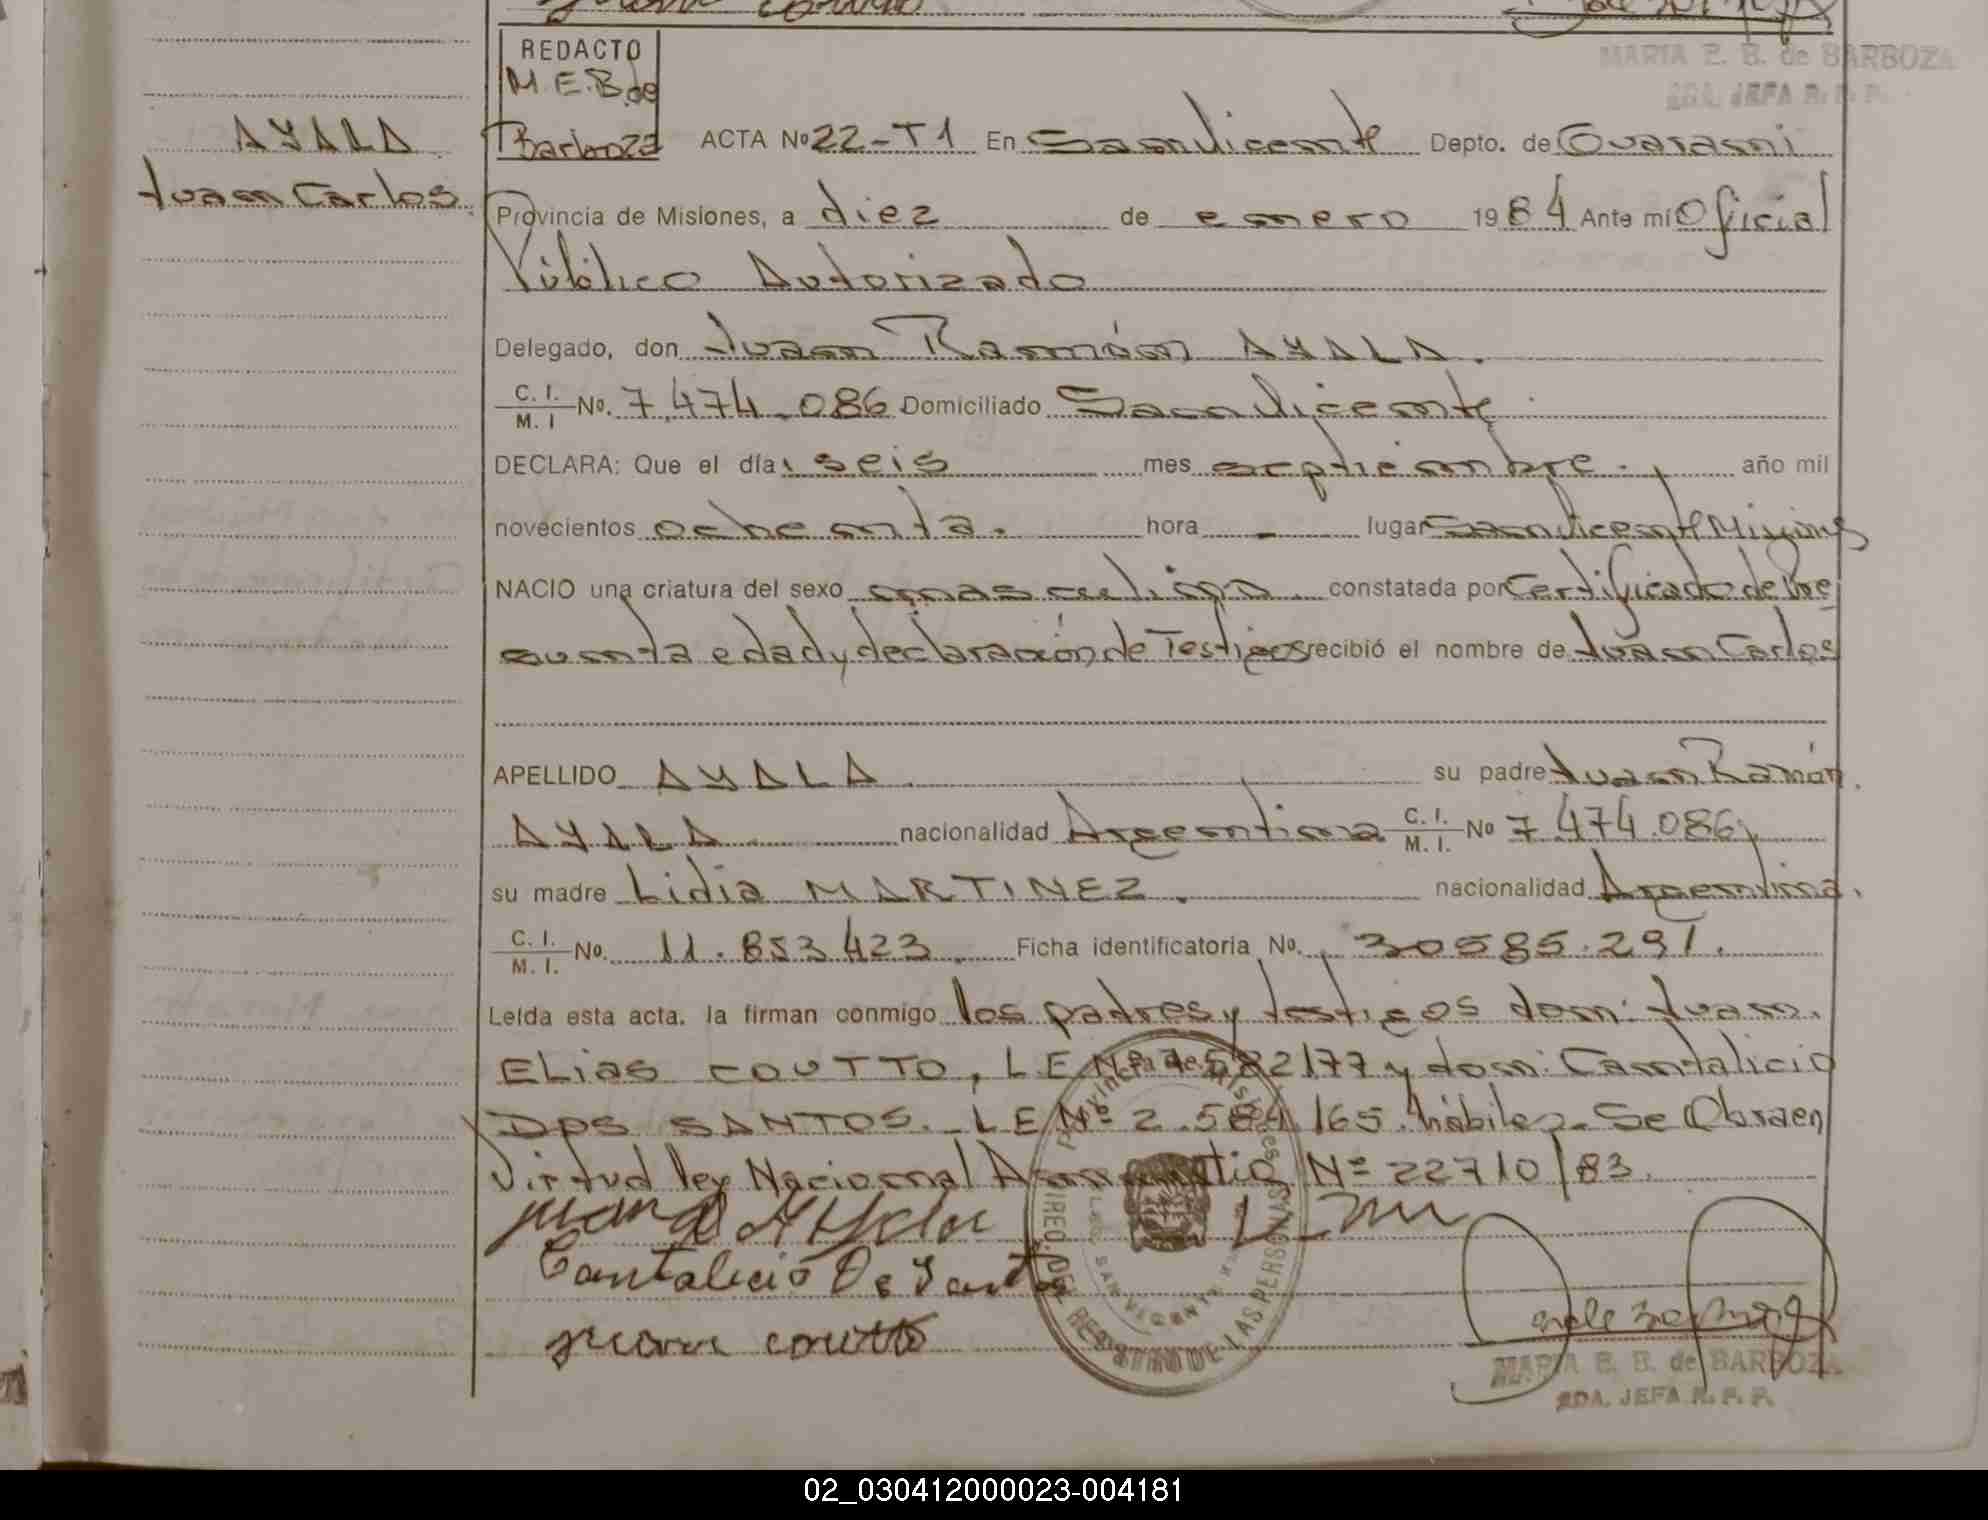 REDACTO
M.E.B. de
Barboza
MARIA E. B. de BARBOZA
2DA. JEFA R. P. P.
AYALA
Juan Carlos.
ACTA Nº 22-T1 En San Vicente Depto. de Guaraní
Provincia de Misiones, a diez de enero 1984 Ante mí Oficial
Público Autorizado
Delegado, don Juan Ramón AYALA.
C. I. / M. I No. 7.474.086 Domiciliado San Vicente
DECLARA: Que el día: seis mes septiembre. año mil
novecientos ochenta. hora - lugar San Vicente Misiones
NACIO una criatura del sexo masculino constatada por Certificado de Pre
sunta edad y declaración de Testigos recibió el nombre de Juan Carlos
APELLIDO AYALA. su padre Juan Ramón
AYALA nacionalidad Argentina C. I. / M. I. Nº 7.474.086,
su madre Lidia MARTINEZ. nacionalidad Argentina.
C. I. / M. I. No. 11.853.423. Ficha identificatoria No. 30585.291.
Leída esta acta. la firman conmigo los padres y testigos don: Juan
ELias COUTTO, L.E.Nº 7.582177 y don: Cantalicio
DOS SANTOS. L.E.Nº 2.584.165. hábiles. Se Obra en
Virtud ley Nacional Amnistia Nº 22710/83.
Cantalicio De Santos
juan coutto
Provincia de Misiones
DIREC. DEL REGISTRO DE LAS PERSONAS
SAN VICENTE
MARIA E. B. de BARBOZA
2DA. JEFA R. P. P.
02_030412000023-004181